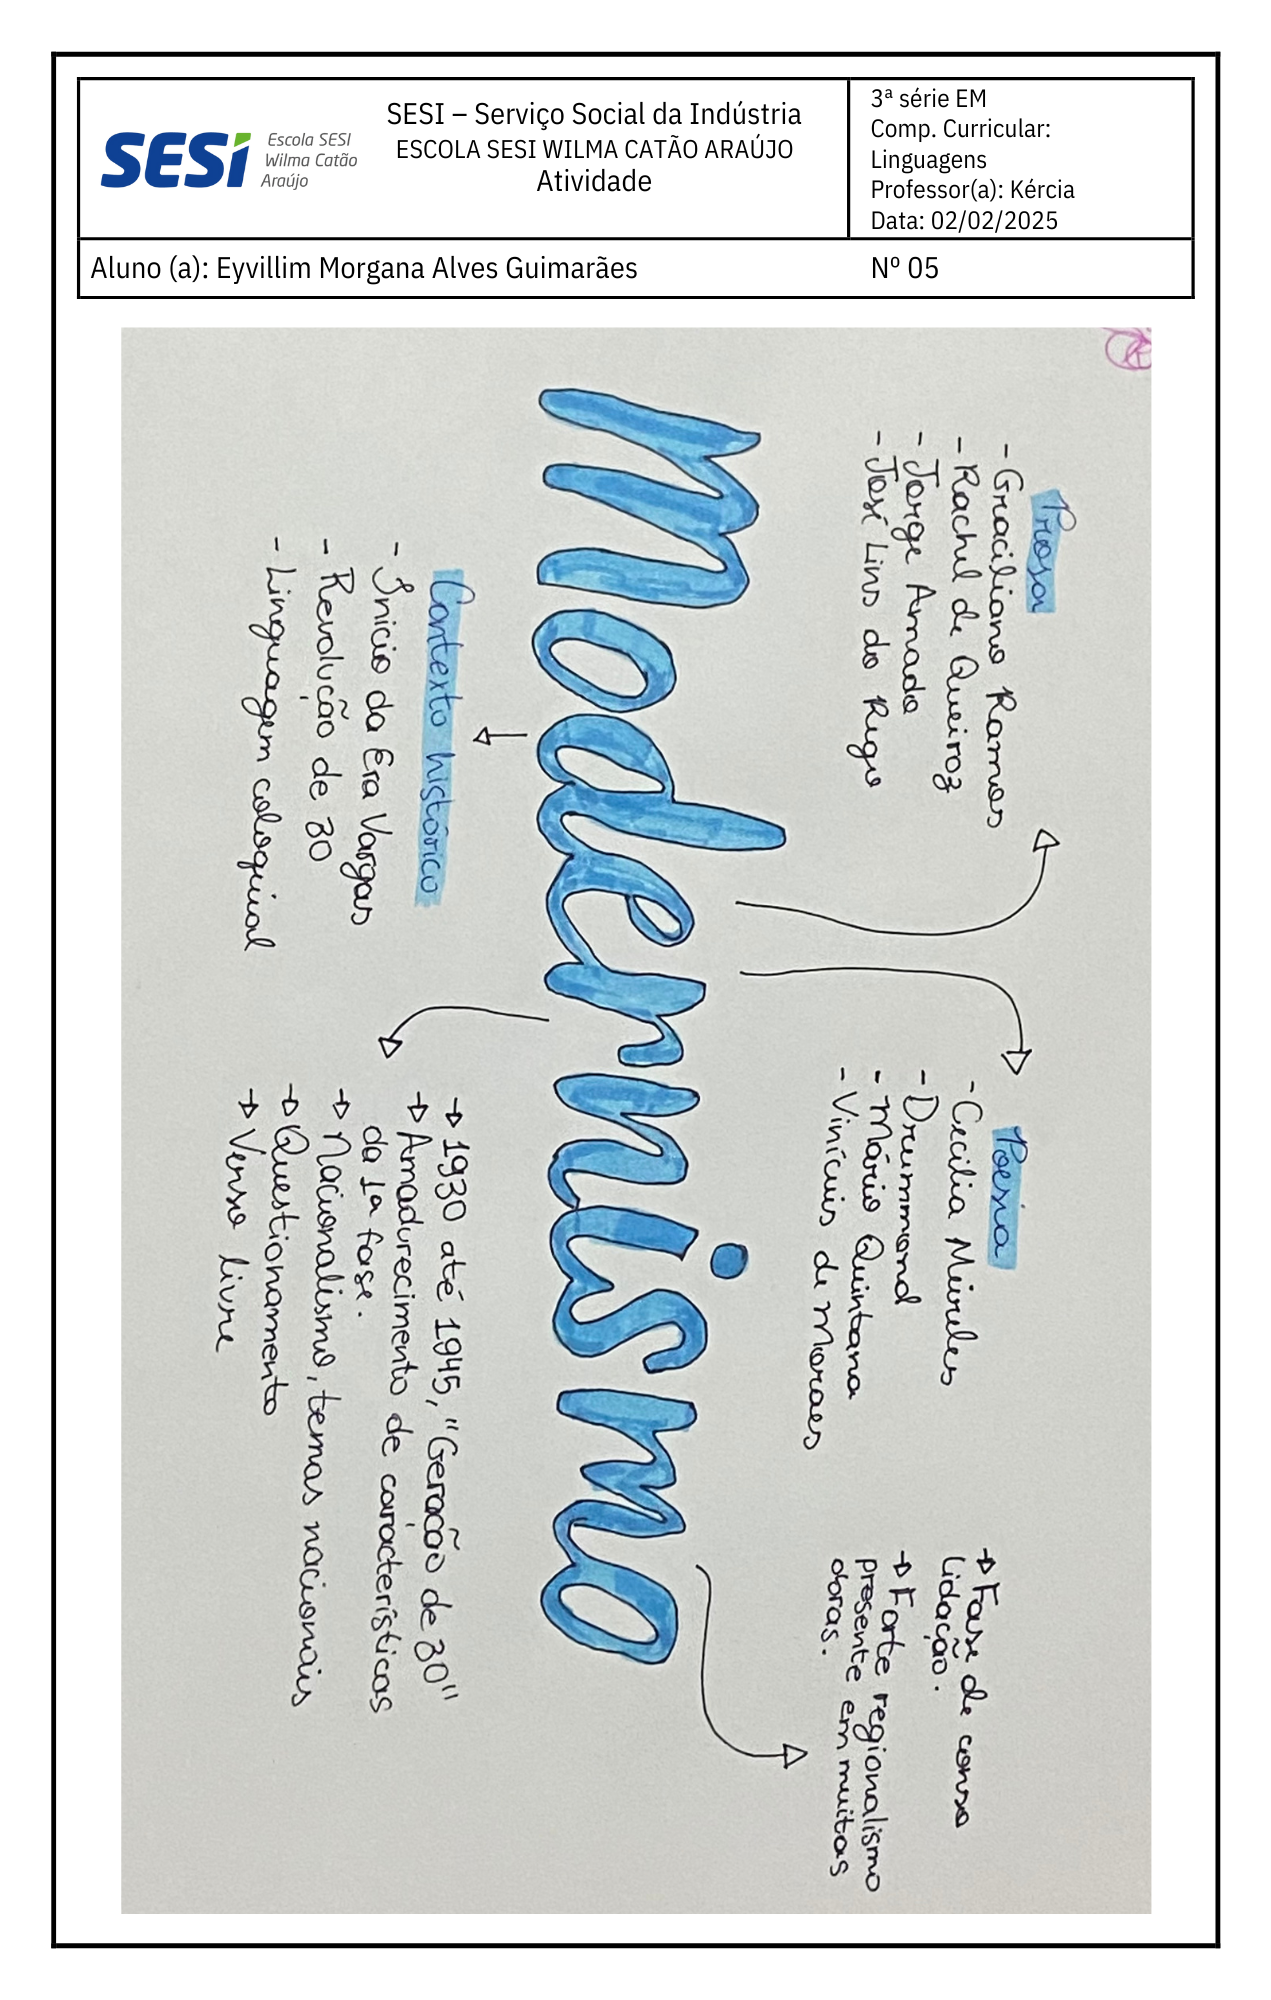 SESI
Escola SESI
Wilma Catão
Araújo
SESI – Serviço Social da Indústria
ESCOLA SESI WILMA CATÃO ARAÚJO
Atividade
3ª série EM
Comp. Curricular:
Linguagens
Professor(a): Kércia
Data: 02/02/2025
Aluno (a): Eyvillim Morgana Alves Guimarães
Nº 05
Prosa
- Graciliano Ramos
- Rachel de Queiroz
- Jorge Amado
- José Lins do Rego
Poesia
- Cecilia Meireles
- Drummond
- Mário Quintana
- Vinícuis de Moraes
→ Fase de conso
lidação.
→ Forte regionalismo
presente em muitas
obras.
Modernismo
Contexto histórico
- Inicio da Era Vargas
- Revolução de 30
- Linguagem coloquial
→ 1930 até 1945, "Geração de 30"
→ Amadurecimento de características
da 1ª fase.
→ Nacionalismo, temas nacionais
→ Questionamento
→ Verso livre